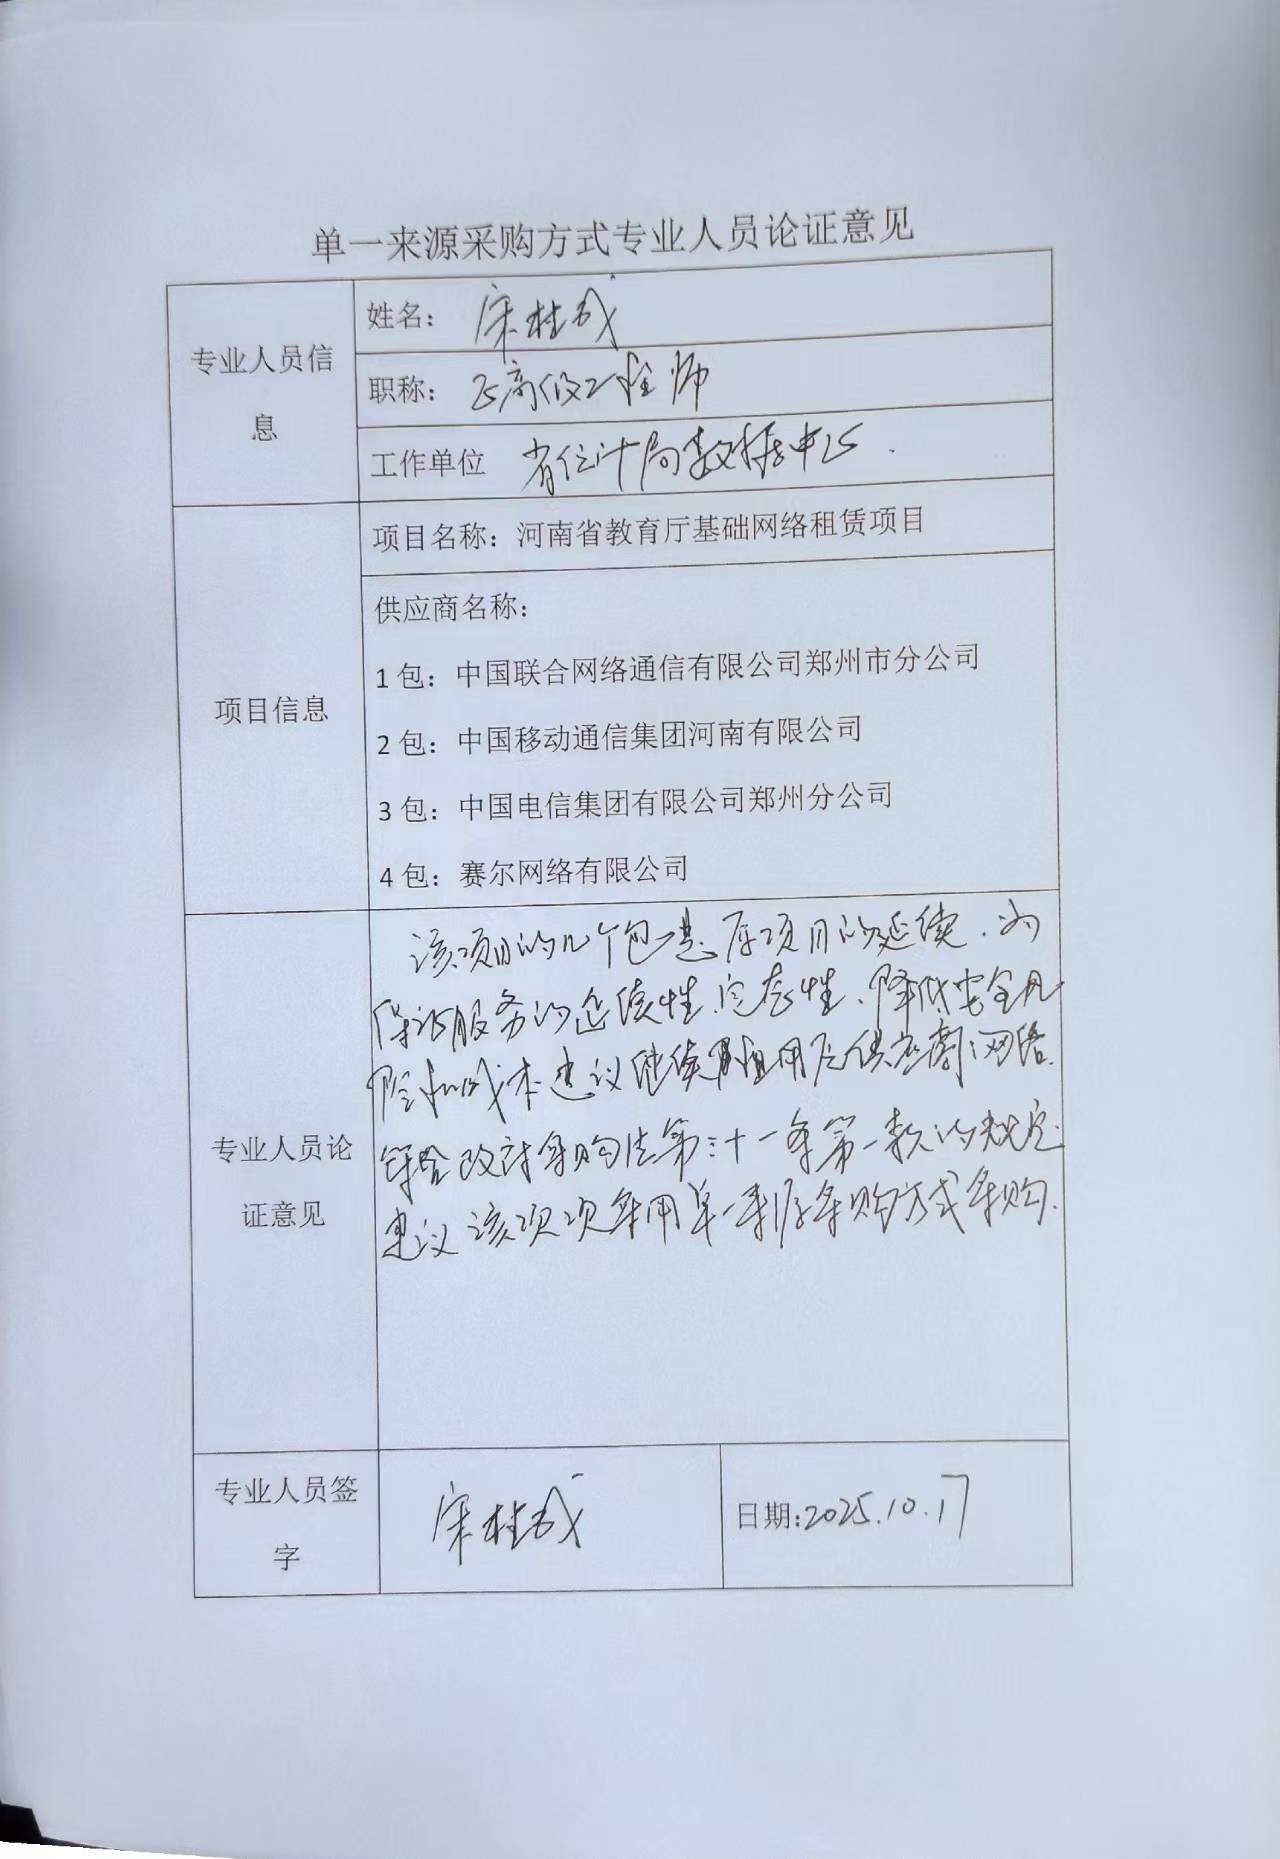 单一来源采购方式专业人员论证意见
专业人员信息
姓名：宋桂成
职称：正高级工程师
工作单位 省统计局数据中心.
项目信息
项目名称：河南省教育厅基础网络租赁项目
供应商名称：
1 包：中国联合网络通信有限公司郑州市分公司
2 包：中国移动通信集团河南有限公司
3 包：中国电信集团有限公司郑州分公司
4 包：赛尔网络有限公司
专业人员论证意见
该项目的几个包是原项目的延续.为
保证服务的延续性.完整性.降低安全风
险和成本建议继续租用原供应商网络.
符合政府采购法第三十一条第一款的规定.
建议该项次采用单一来源采购方式采购.
专业人员签字
宋桂成
日期:2025.10.17